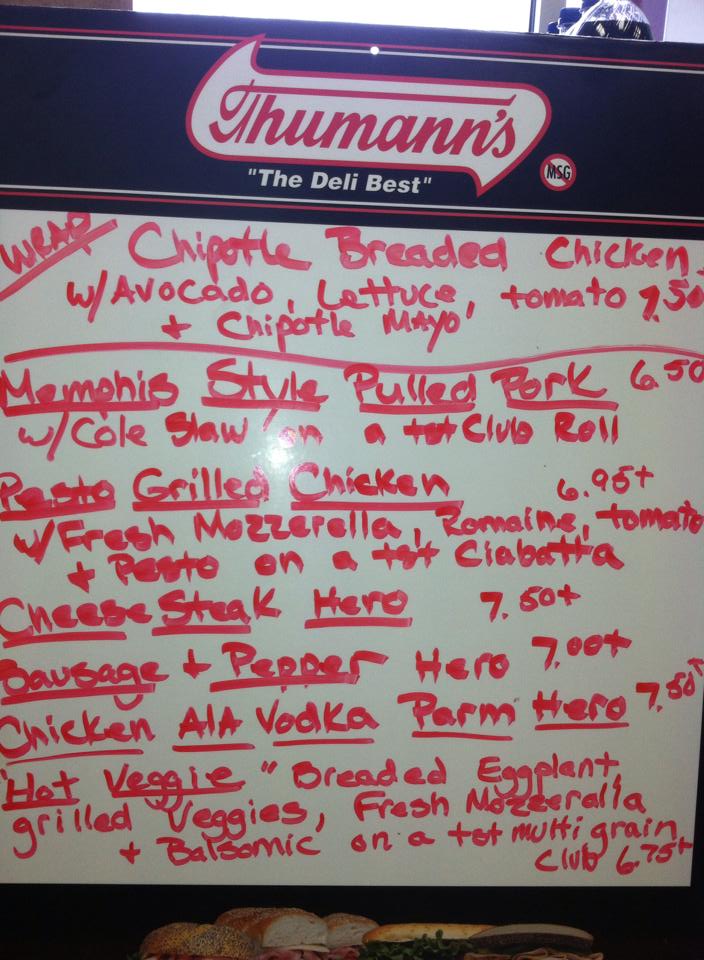 Thumann's
"The Deli Best"
MSG
WRAP Chipotle Breaded Chicken
w/Avocado, Lettuce, tomato 7.50
+ Chipotle Mayo
Memphis Style Pulled Pork 6.50
w/Cole Slaw on a tst Club Roll
Pesto Grilled Chicken 6.95+
w/Fresh Mozzerella, Romaine, tomato
+ Pesto on a tst Ciabatta
Cheese Steak Hero 7.50+
Sausage + Pepper Hero 7.00+
Chicken AlA Vodka Parm Hero 7.50+
"Hot Veggie" Breaded Eggplant,
grilled Veggies, Fresh Mozzeralla
+ Balsomic on a tst multi grain
Club 6.75+